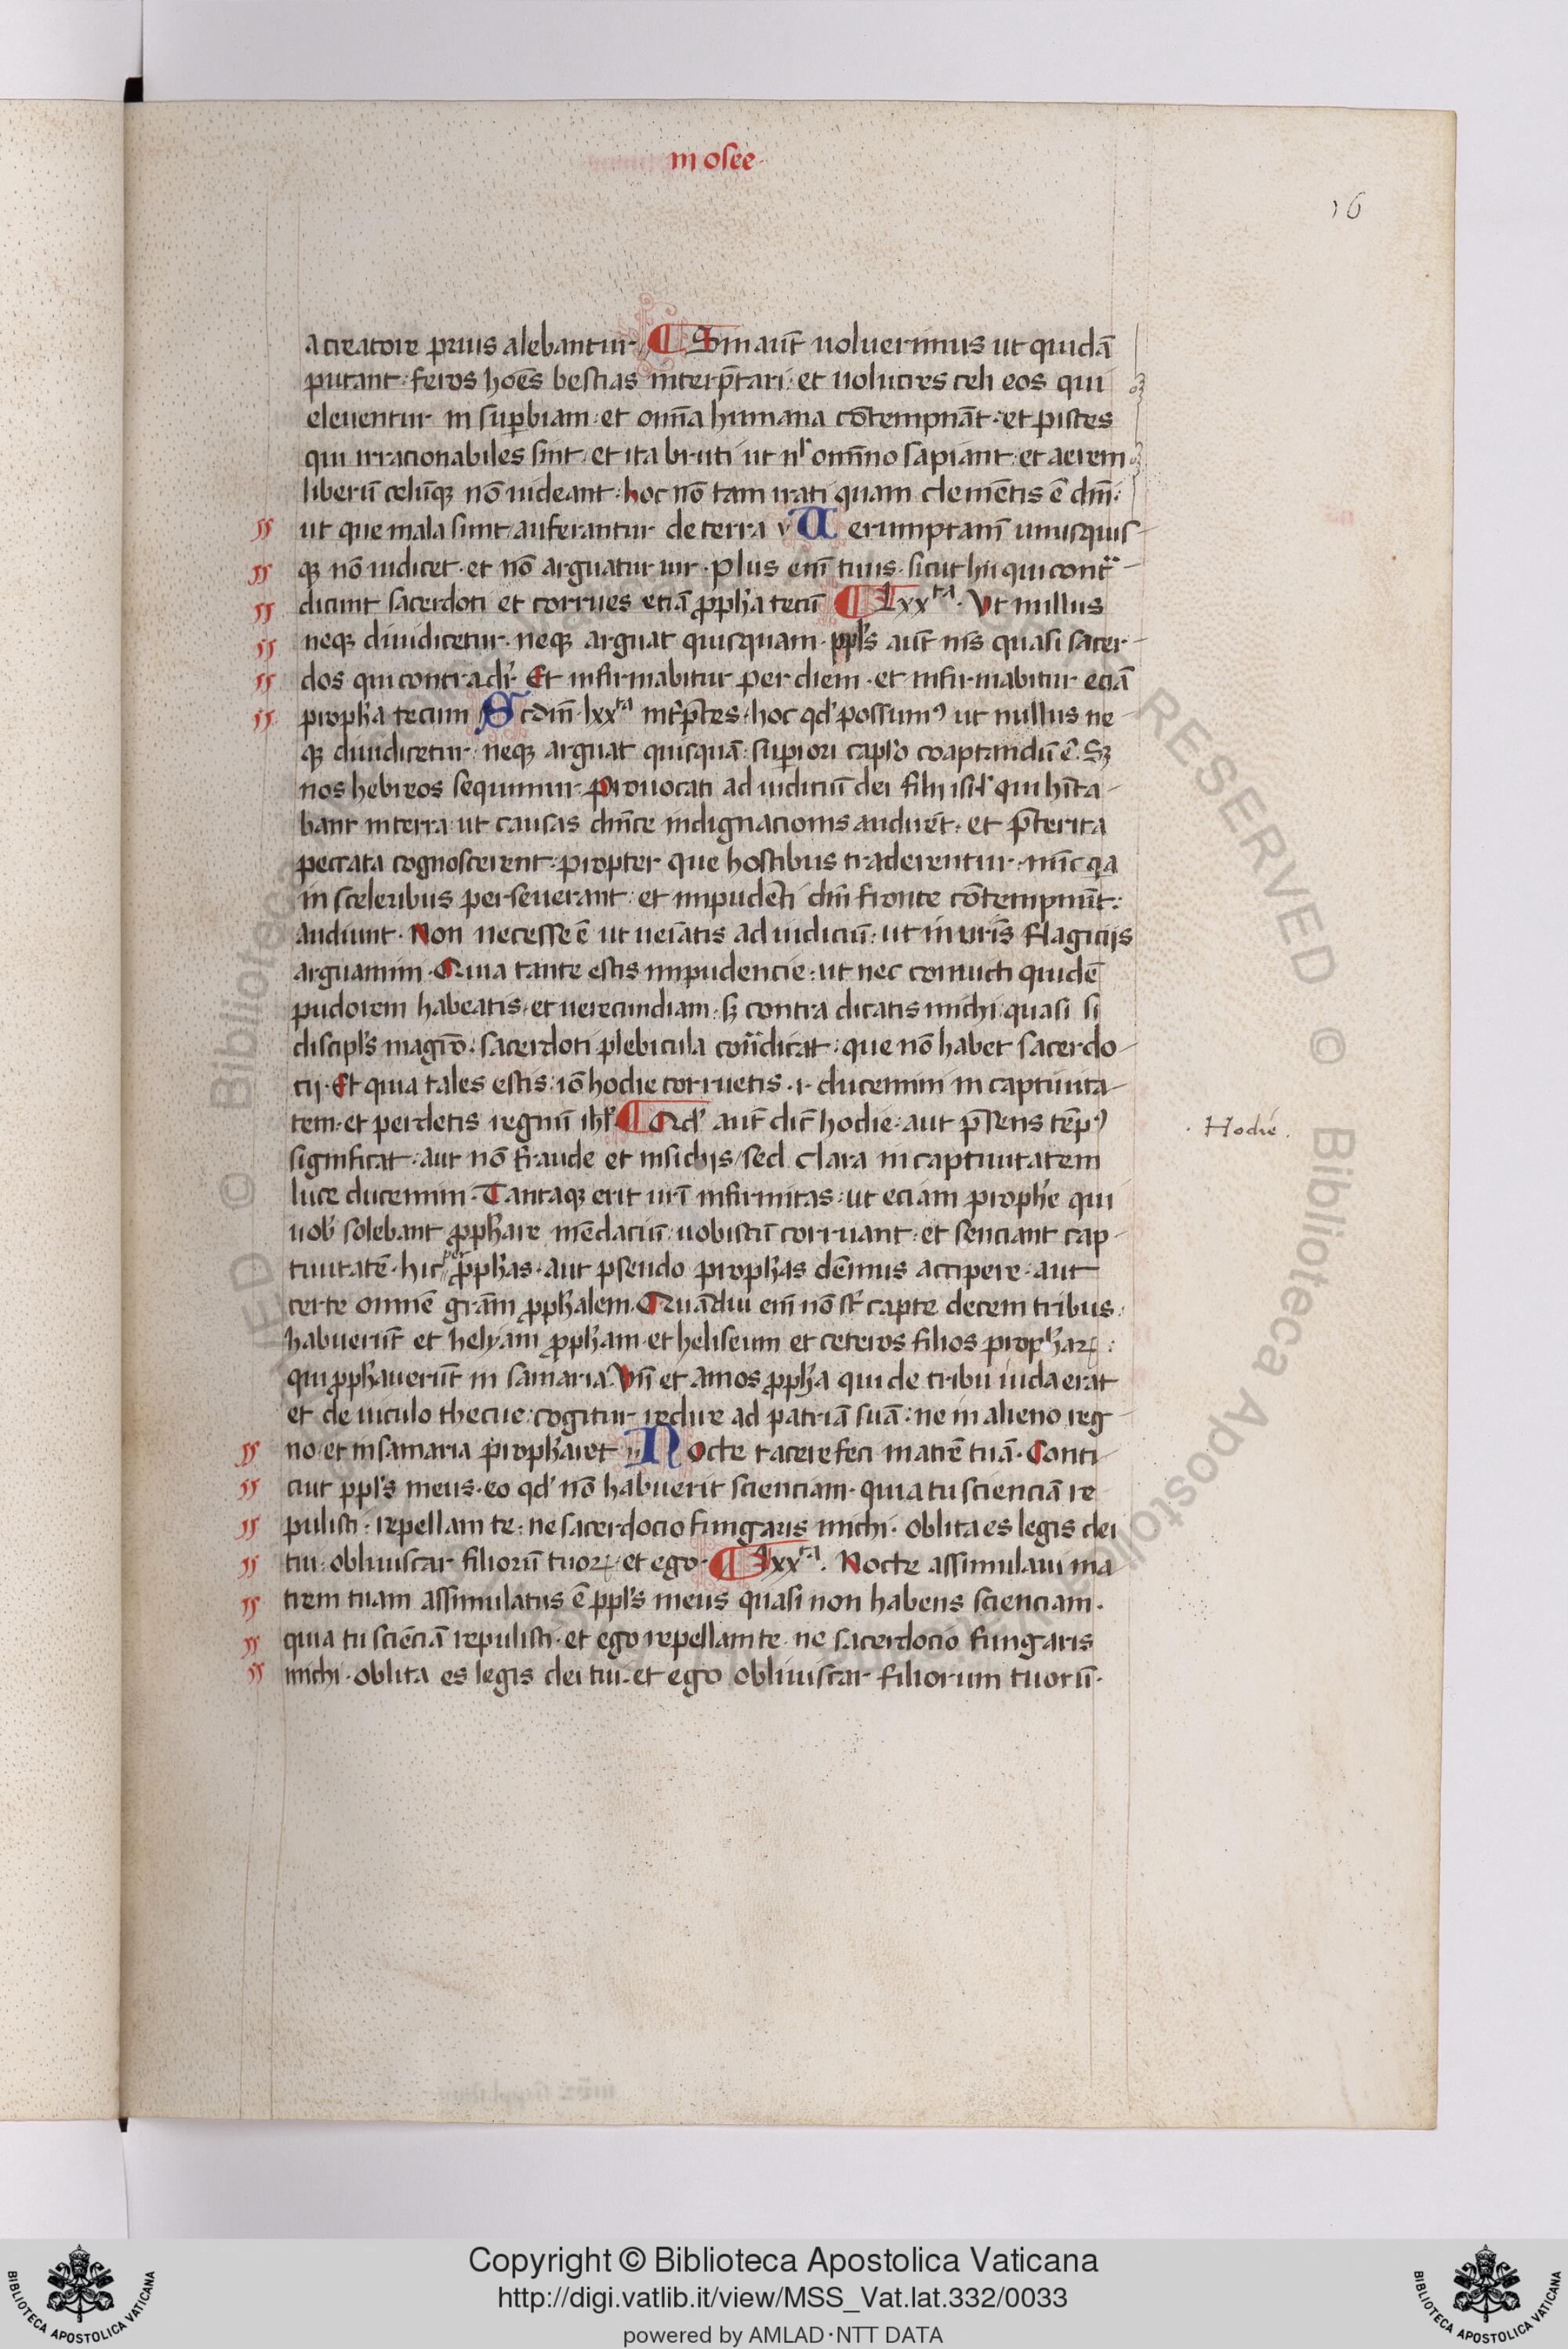 in osee
16
a creatore prius alebantur. Sin aūt uoluerimus ut quidā
putant. feros hoēs bestias interp̄tari. et uolucres celi eos qui
eleuentur in suꝑbiam. et om̄a humana cōtempnāt. et pisces
qui irracionabiles sint. et ita bruti ut nl̓ om̄ino sapiant. et aerem
liberū celūqꝫ nō uideant. hoc nō tam irati quam clemētis ē dn̄i.
ut que mala sunt auferantur de terra Uerumptam̄ unusquis-
qꝫ nō iudicet. et nō arguatur uir. Plus em̄ tuus. sicut hii qui cont͛-
dicunt sacerdoti et corrues eciā ꝓph̄a tecū lxxᵗᵃ. Ut nullus
neqꝫ diiudicetur. neqꝫ arguat quisquam. ppl̓s aūt m̄s quasi sacer-
dos qui contradr̄. Et infirmabitur per diem. et infirmabitur eciā
proph̄a tecum Scdm̄ lxxᵗᵃ int̓p̄tes. hoc qd̓ possumꝰ ut nullus ne-
qꝫ diiudicetur. neqꝫ arguat quisquā. suꝑiori capl̓o coaptandū ē. Sꝫ
nos hebreos sequimur. Prouocati ad iudiciū dei filii isrl̓ qui hīta-
bant in terra ut causas dn̄ice indignacionis audirēt. et p̄terita
peccata cognoscerent. propter que hostibus traderentur. nūc qa
in sceleribus perseuerant. et impudēti dn̄m fronte cōtempnūt.
audiunt. Non necesse ē ut ueīatis ad iudiciū. ut in uris̄ flagiciis
arguamini. Quia tante estis impudencie. ut nec conuicti quidē
pudorem habeatis. et uerecundiam. sꝫ contra dicatis michi. quasi si
discipl̓s magr̄o. sacerdoti plebicula cont͛dicat. que nō habet sacerdo-
cii. Et quia tales estis. iō hodie corruetis .i. ducemini in captiuita-
tem. et perdetis regnū ihl̓. Qd̓ aūt dic̄ hodie. aut p̄sens tēpꝰ
significat. aut nō fraude et insidiis / sed clara in captiuitatem
luce ducemini. Tantaqꝫ erit ur̄i infirmitas. ut eciam proph̄e qui
uob̓ solebant ꝓph̄are mēdaciū. uobiscū corruant. et senciant cap-
tiuitatē. hic ꝓph̄as. aut pseudo proph̄as dēmus accipere. aut
certe omnē gr̄am ꝓph̄alem. Quādiu em̄ nō st̓ capte decem tribus.
habuerūt et helyam ꝓph̄am. et heliseum et ceteros filios proph̄aꝝ.
qui ꝓph̄auerūt in samaria. Un̄ et amos ꝓph̄a qui de tribu iuda erat
et de uiculo thecue. cogitur redire ad patriā suā. ne in alieno reg-
no et in samaria proph̄aret Nocte tacere feci matrē tuā. Conti-
cuit ppl̓s meus. eo qd̓ nō habuerit scienciam. quia tu scienciā re
pulisti. repellam te. ne sacerdocio fungaris michi. oblita es legis dei
tui. obliuiscar filiorū tuoꝝ. et ego. lxxᵗᵃ. Nocte assimulaui ma
trem tuam assimulatus ē ppl̓s meus quasi non habens scienciam.
quia tu sciēciā repulisti. et ego repellam te. ne sacerdocio fungaris
michi. oblita es legis dei tui. et ego obliuiscar filiorum tuorū.
Hodie.
Copyright © Biblioteca Apostolica Vaticana
http://digi.vatlib.it/view/MSS_Vat.lat.332/0033
powered by AMLAD·NTT DATA
BIBLIOTECA APOSTOLICA VATICANA
BIBLIOTECA APOSTOLICA VATICANA